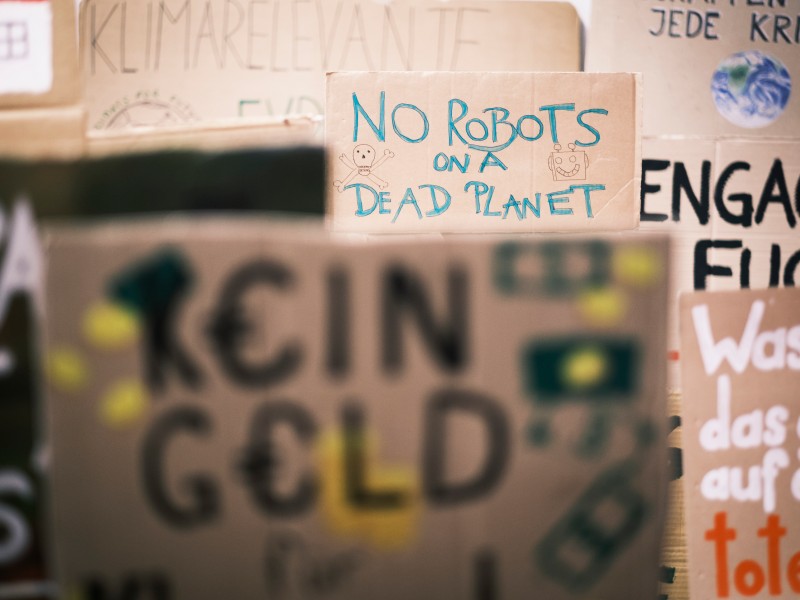 KLIMARELEVANTE
JEDE KRI
NO ROBOTS
ON A
DEAD PLANET
ENGA
K€IN
G€LD
für
Was
das
auf
tote